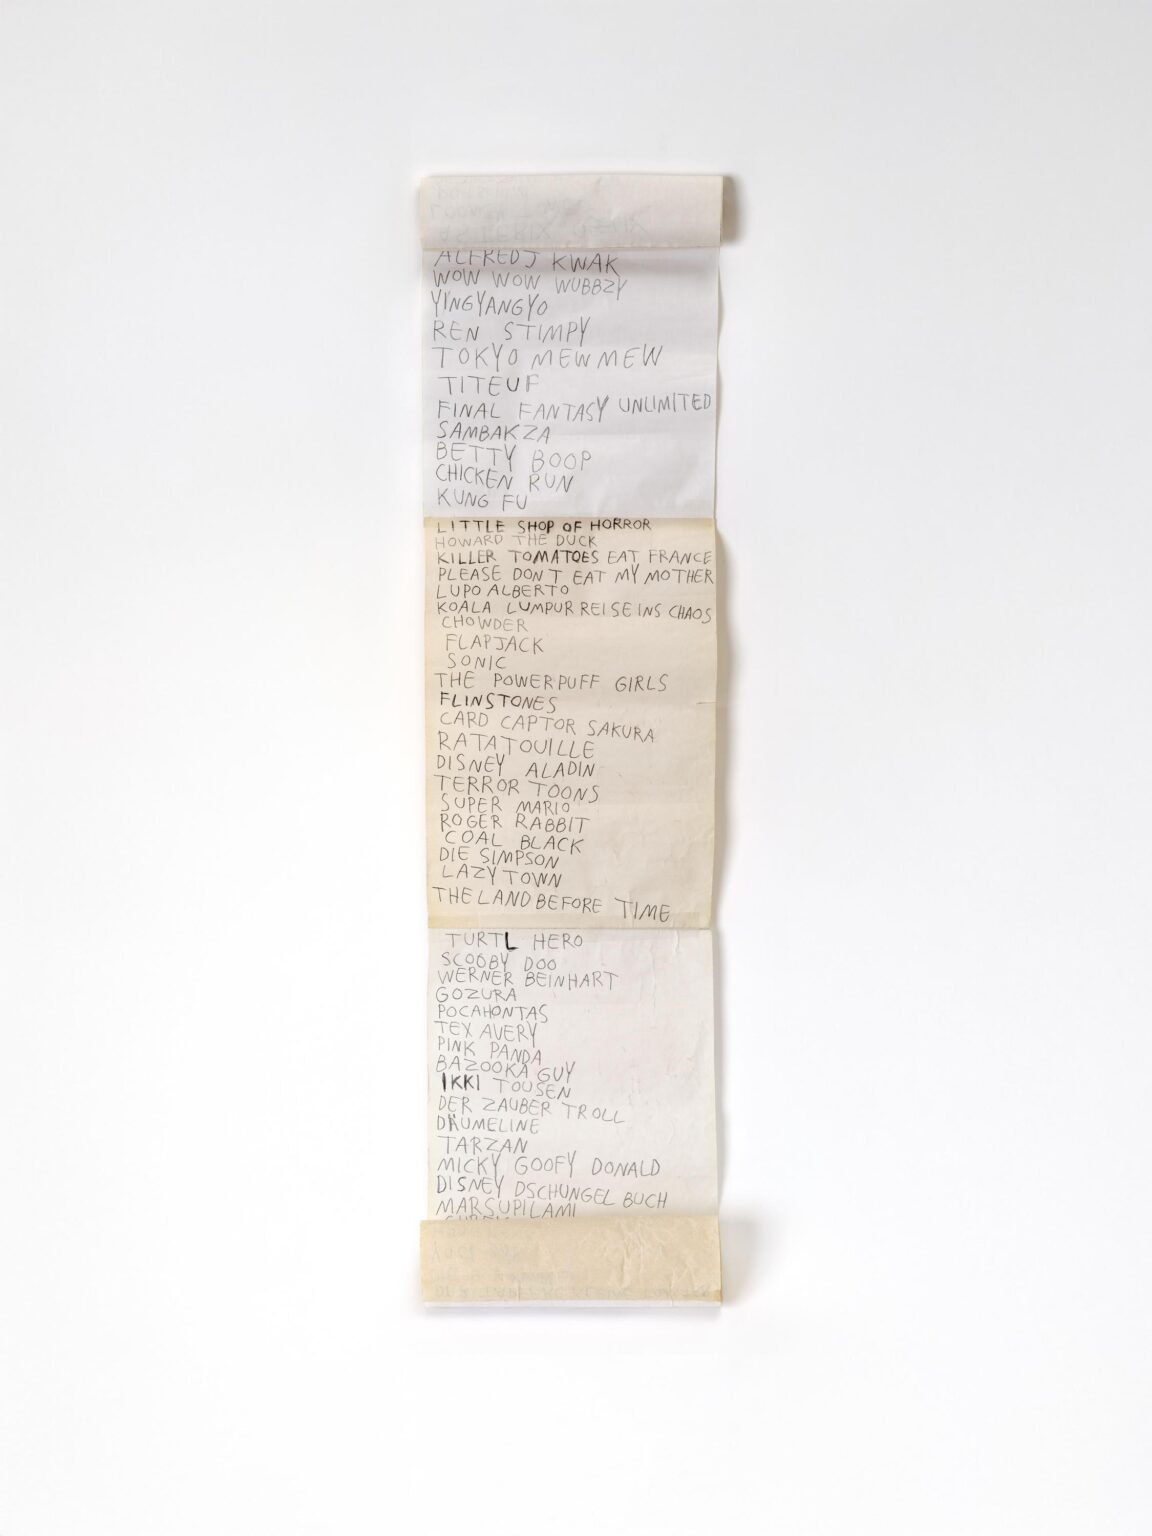 ALFRED J KWAK
WOW WOW WUBBZY
YINGYANGYO
REN STIMPY
TOKYO MEWMEW
TITEUF
FINAL FANTASY UNLIMITED
SAMBAKZA
BETTY BOOP
CHICKEN RUN
KUNG FU
LITTLE SHOP OF HORROR
HOWARD THE DUCK
KILLER TOMATOES EAT FRANCE
PLEASE DON'T EAT MY MOTHER
LUPO ALBERTO
KOALA LUMPUR REISE INS CHAOS
CHOWDER
FLAPJACK
SONIC
THE POWERPUFF GIRLS
FLINSTONES
CARD CAPTOR SAKURA
RATATOUILLE
DISNEY ALADIN
TERROR TOONS
SUPER MARIO
ROGER RABBIT
COAL BLACK
DIE SIMPSON
LAZY TOWN
THE LAND BEFORE TIME
TURTL HERO
SCOOBY DOO
WERNER BEINHART
GOZURA
POCAHONTAS
TEX AVERY
PINK PANDA
BAZOOKA GUY
IKKI TOUSEN
DER ZAUBER TROLL
DÄUMELINE
TARZAN
MICKY GOOFY DONALD
DISNEY DSCHUNGEL BUCH
MARSUPILAMI